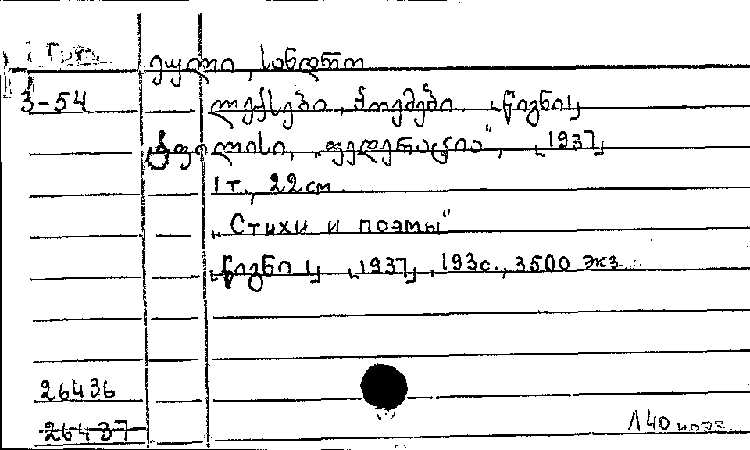 ეული, სანდრო
3-54
ლექსები, პოემები. [წიგნი 1]
ტფილისი, „ფედერაცია", [1937]
1 т., 22 см.
„Стихи и поэмы"
[წიგნი 1] [1937], 193 с., 3500 экз.
26436
26437
Л 40